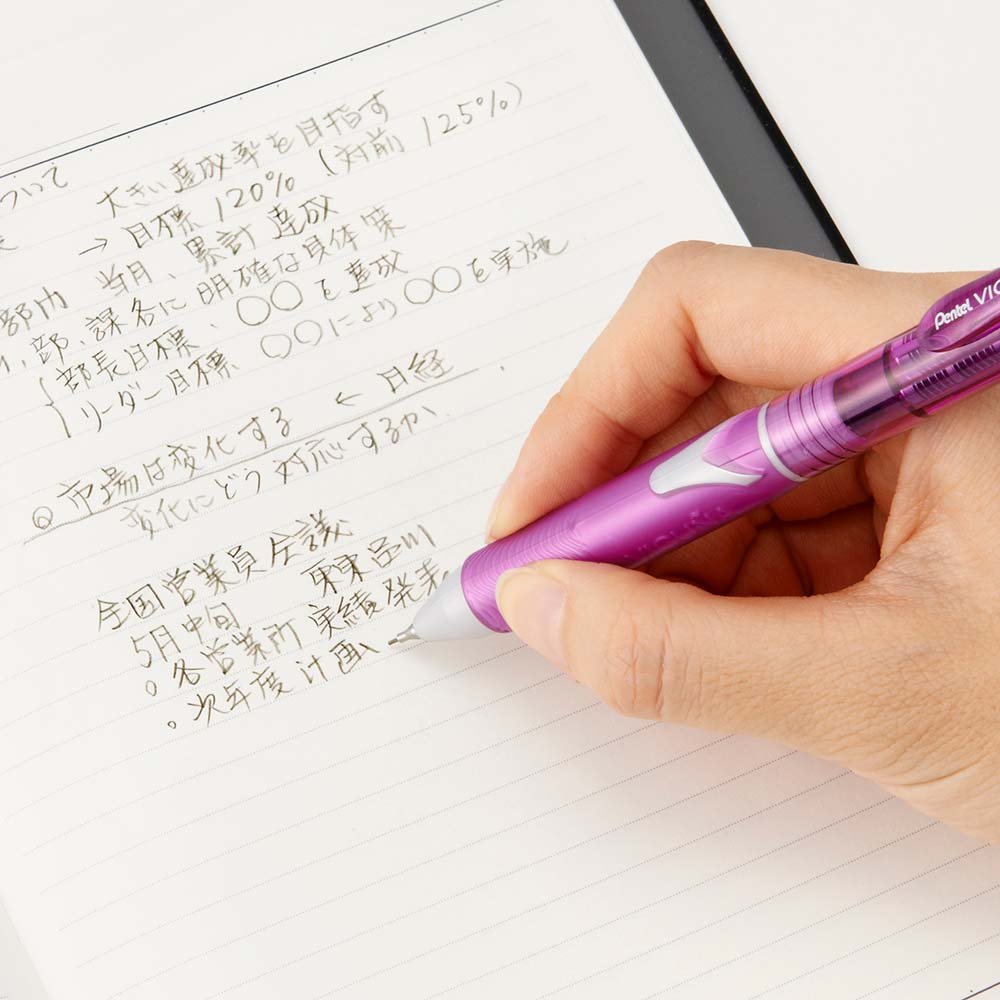 ついて
大きい達成率を目指す
→ 目標 120% (対前 125%)
部内 当月、累計達成
部、課各に明確な具体策
{ 部長目標、〇〇を達成
リーダー目標 〇〇により〇〇を実施
◎ 市場は変化する ← 日経
変化にどう対応するか
全国営業員会議
5月中旬
。各営業所 実績発表
。次年度計画
Pentel VIC